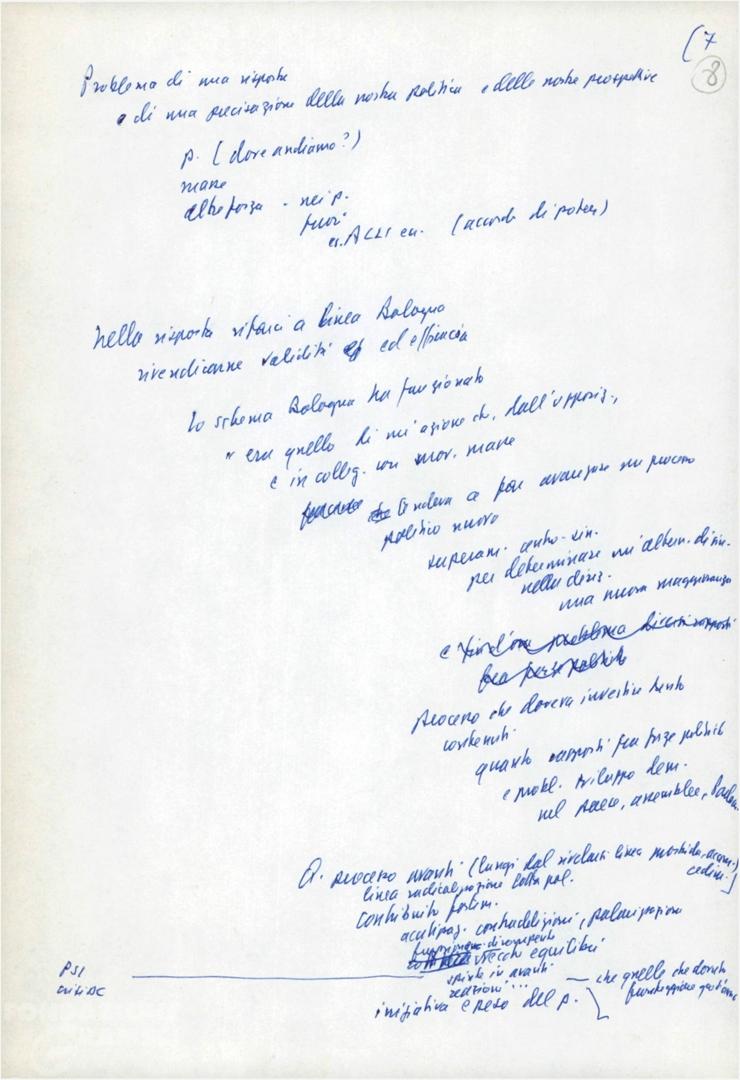 (7
8
Problema di una risposta
e di una precisazione della nostra politica e delle nostre prospettive
p. (dove andiamo?)
masse
altre forze - nei p.
fuori
es. ACLI ecc. (accordi di potere)
Nella risposta rifarci a linea Bologna
rivendicarne validità ed efficacia
Lo schema Bologna ha funzionato
era quello di un'azione che, dall'opposiz.,
e in colleg. con mov. masse
tendeva a far avanzare un processo
politico nuovo
superam. centro-sin.
per determinare un'altern. di sin.
nella direz.
una nuova maggioranza
e
processo che doveva investire tanto
contenuti
quanto rapporti fra forze politiche
e probl. sviluppo dem.
nel Paese, assemblee,
Q. processo avanti (lungi dal rivelarsi linea morbida,
cedim.)
linea radicalizzazione lotta pol.
Contributo
acutizzaz. contraddizioni, polarizzazione
vecchi equilibri
spinte in avanti
reazioni ...
PSI
crisi DC
iniziativa e peso del p.
che quelle che dovrebbero